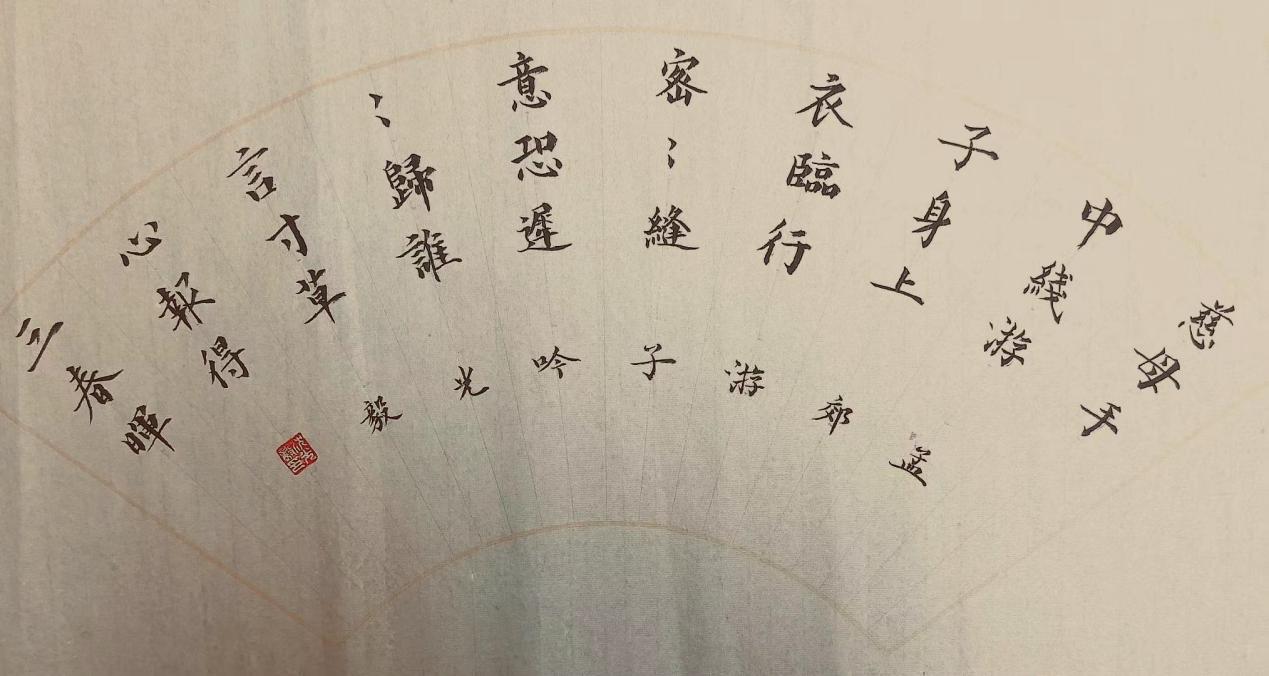 慈母手
中綫游
子身上
衣臨行
密〻縫
意恐遲
〻歸誰
言寸草
心報得
三春暉
孟郊游子吟光毅